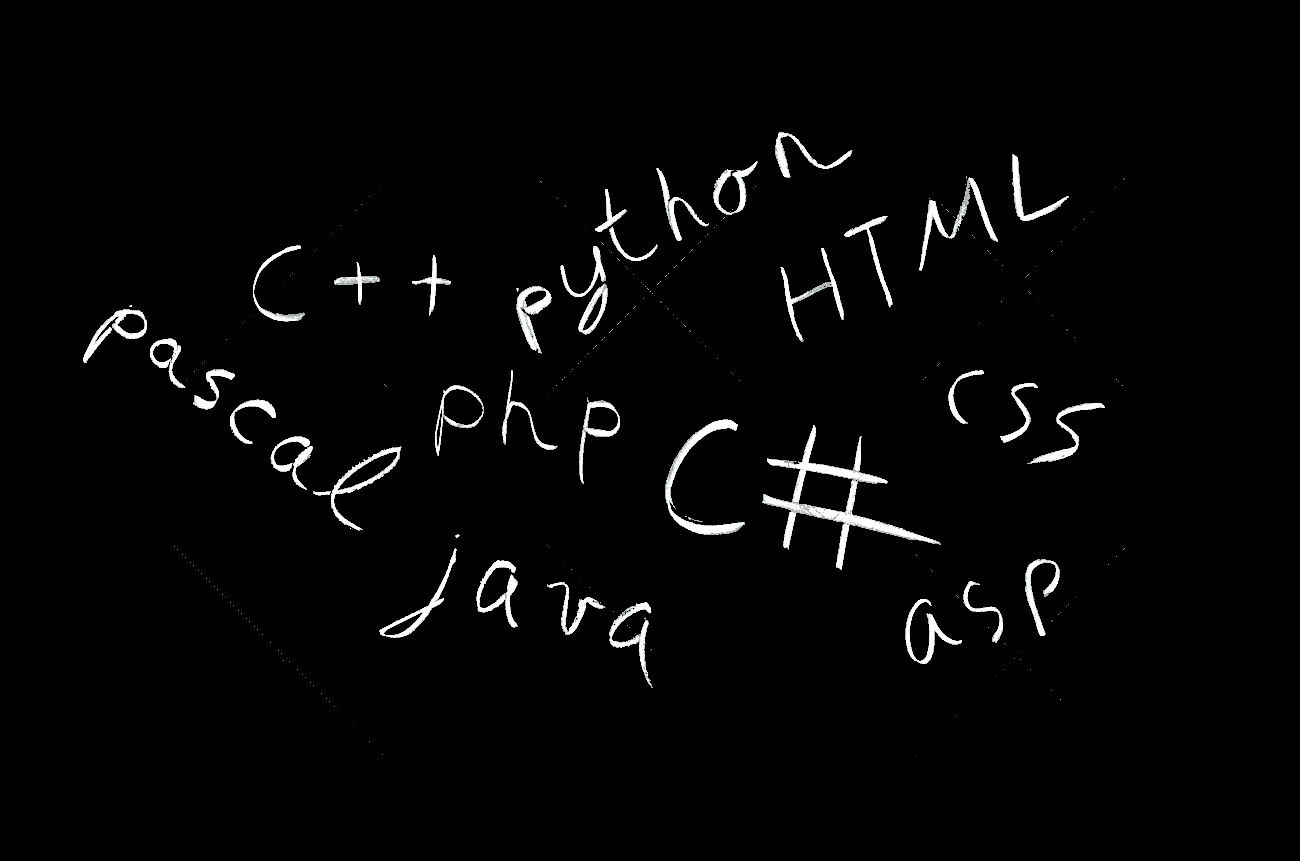 C++
python
HTML
pascal
php
C#
css
java
asp